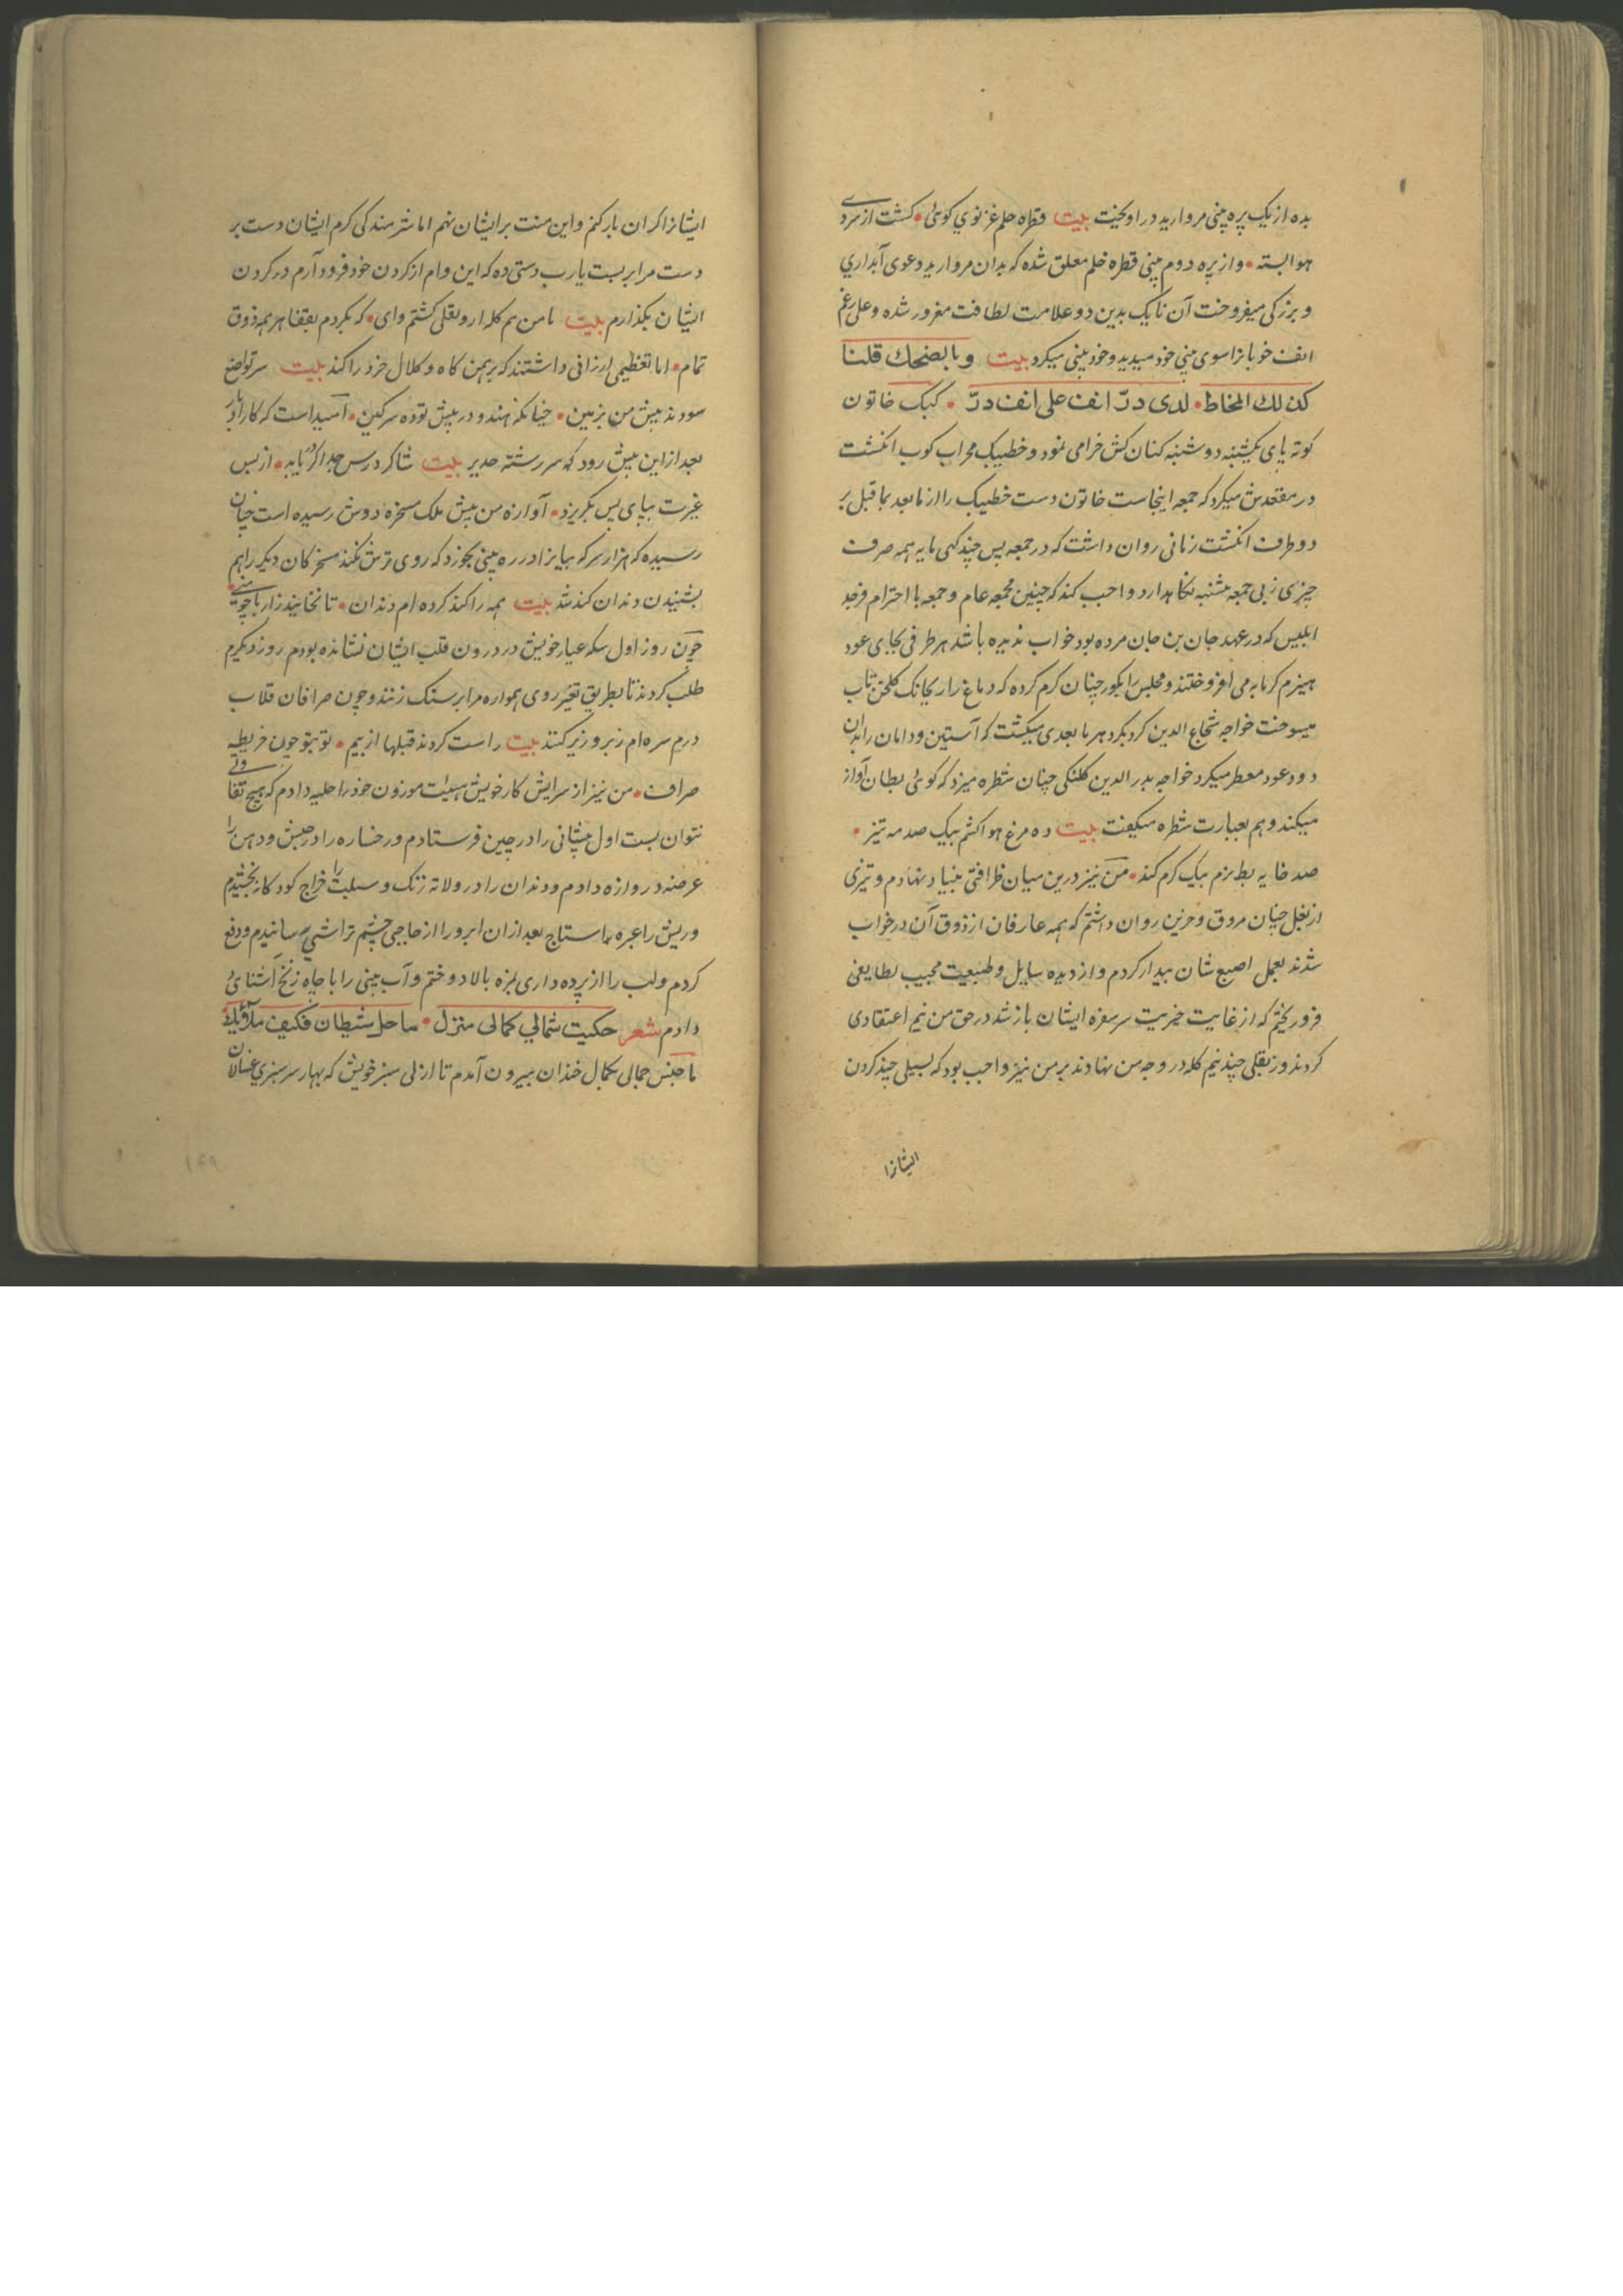 بده از یک پره بینی مروارید در اویخت بیت قطره حلم غزنوی کوئی • کشت از سردی
هوا بسته • و از پره دوم بینی قطره خلم معلق شده که بدان مروارید دعوی آبداری
و بزرکی میفروخت آن نایک بدین دو علامت لطافت مغرور شده و علی رغم
انف خوبانرا سوی بینی خود میدید و خود بینی میکرد بیت و بالضحك قلنا
كذلك المخاط • لدى درّ انف على انف درّ • کبک خاتون
کوته پای یکشنبه دوشنبه کنان کش خرامی نمود و خطیبک محراب کوب انکشت
در مقعدش میکرد که جمعه اینجاست خاتون دست خطیبک را از ما بعد بما قبل بر
دو طرف انکشت زنانی روان داشت که در جمعه پس چند کهی مایه همه صرف
چیزی ز بی جمعه بشنبه نکاهدارد واجب کند که چنین مجمعه عام و جمعه با احترام فرجد
ابلیس که در عهد جان بن جان مرده بود خواب ندیده باشد هر طرفی بجای عود
هیزم کرمابه می افروختند و مجلس را بکور چنان کرم کرده که دماغ را ریحانک کلخن تاب
میسوخت خواجه شجاع الدین کرد بکرد هر ما بعدی میکشت که آستین و دامان را بدان
دود عود معطر میکرد خواجه بدر الدین کلنکی چنان شطره میزد که کوئی بطان آواز
میکند و هم بعبارت شطره میکفت بیت ده مرغ هوا کشم بیک صدمه تیز •
صد خایه بط بزم بیک کرم کند • من نیز درین میان ظرافتی بنیاد نهادم و تیزی
از بغل چنان مروق و حزین روان داشتم که همه عارفان از ذوق آن در خواب
شدند بعمل اصبع شان بیدار کردم و از دیده سایل و طبیعت مجیب لطایفی
فرو ریختم که از غایت خریت سر سفره ایشان باز شد در حق من نیم اعتقادی
کردند و ز نقلی چند نیم کله در وجه من نهادند بر من نیز واجب بود که بسیلی چند کردن
ایشانرا
ایشانرا کران بار کنم و این منت بر ایشان نهم اما شرمندکی کرم ایشان دست بر
دست مرا بر بست یارب دستی ده که این وام از کردن خود فرود آرم در کردن
ایشان بکذارم بیت با من هم کله ار و نقلی کشتم وای • که بکردم بقفا هر همه ذوق
تمام • اما تعظیمی ارزانی داشتند که برهمن کاه و کلال خرد را کند بیت سر تواضع
سودند پیش من بزمین • چنانکه هندو در پیش توده سرکین • امید است که کار ادبار
بعد از این پیش رود که سر رشته جدیر بیت شاکرد رس جدا کرد باید • از پس
غیرت بپای پس بکریزد • آوازه من پیش ملک مسخره دوش رسیده است چنان
رسیده که هزار سر که بیابزا در ره بینی بجوزد که روی ترش نکند مسخرکان دیکر را هم
بشنیدن دندان کند شد بیت همه را کند کرده ام دندان • تا نخایند زار باجو منی •
چون روز اول سکه عیار خویش در درون قلب ایشان نشانده بودم روز دیکرم
طلب کردند تا بطریق تغیر روی هموار مرا بر سنک زنند و چون صرافان قلاب
درم سره ام زبر و زیر کنند بیت راست کردند قبلها از بیم • تو بتو چون خریطه
صراف • من نیز از سرایش کار خویش هیئت موزون خود را حلیه دادم که هیچ تفاوتی
نتوان بست اول پیشانی را در چین فرستادم و رخساره را در حبش و دهن را
عرضه دروازه دادم و دندان را در ولایه زنک و سبلت را خراج کود کان بخشیدم
و ریش را عبره ماستاج بعد ازان ابرو را از حاجبی چشم تراشی رسانیدم و رفع
کردم و لب را از پرده داری بمزه بالا دوختم و آب بینی را با چاه زنخ آشنائی
دادم شعر حكيت شمالي كمالى منزل • ماحل شيطان فكيف ملائك
با چنین جمالی بکمال خندان بیرون آمدم تا از لی سبز خویش که بهار سرسبزی غسالان